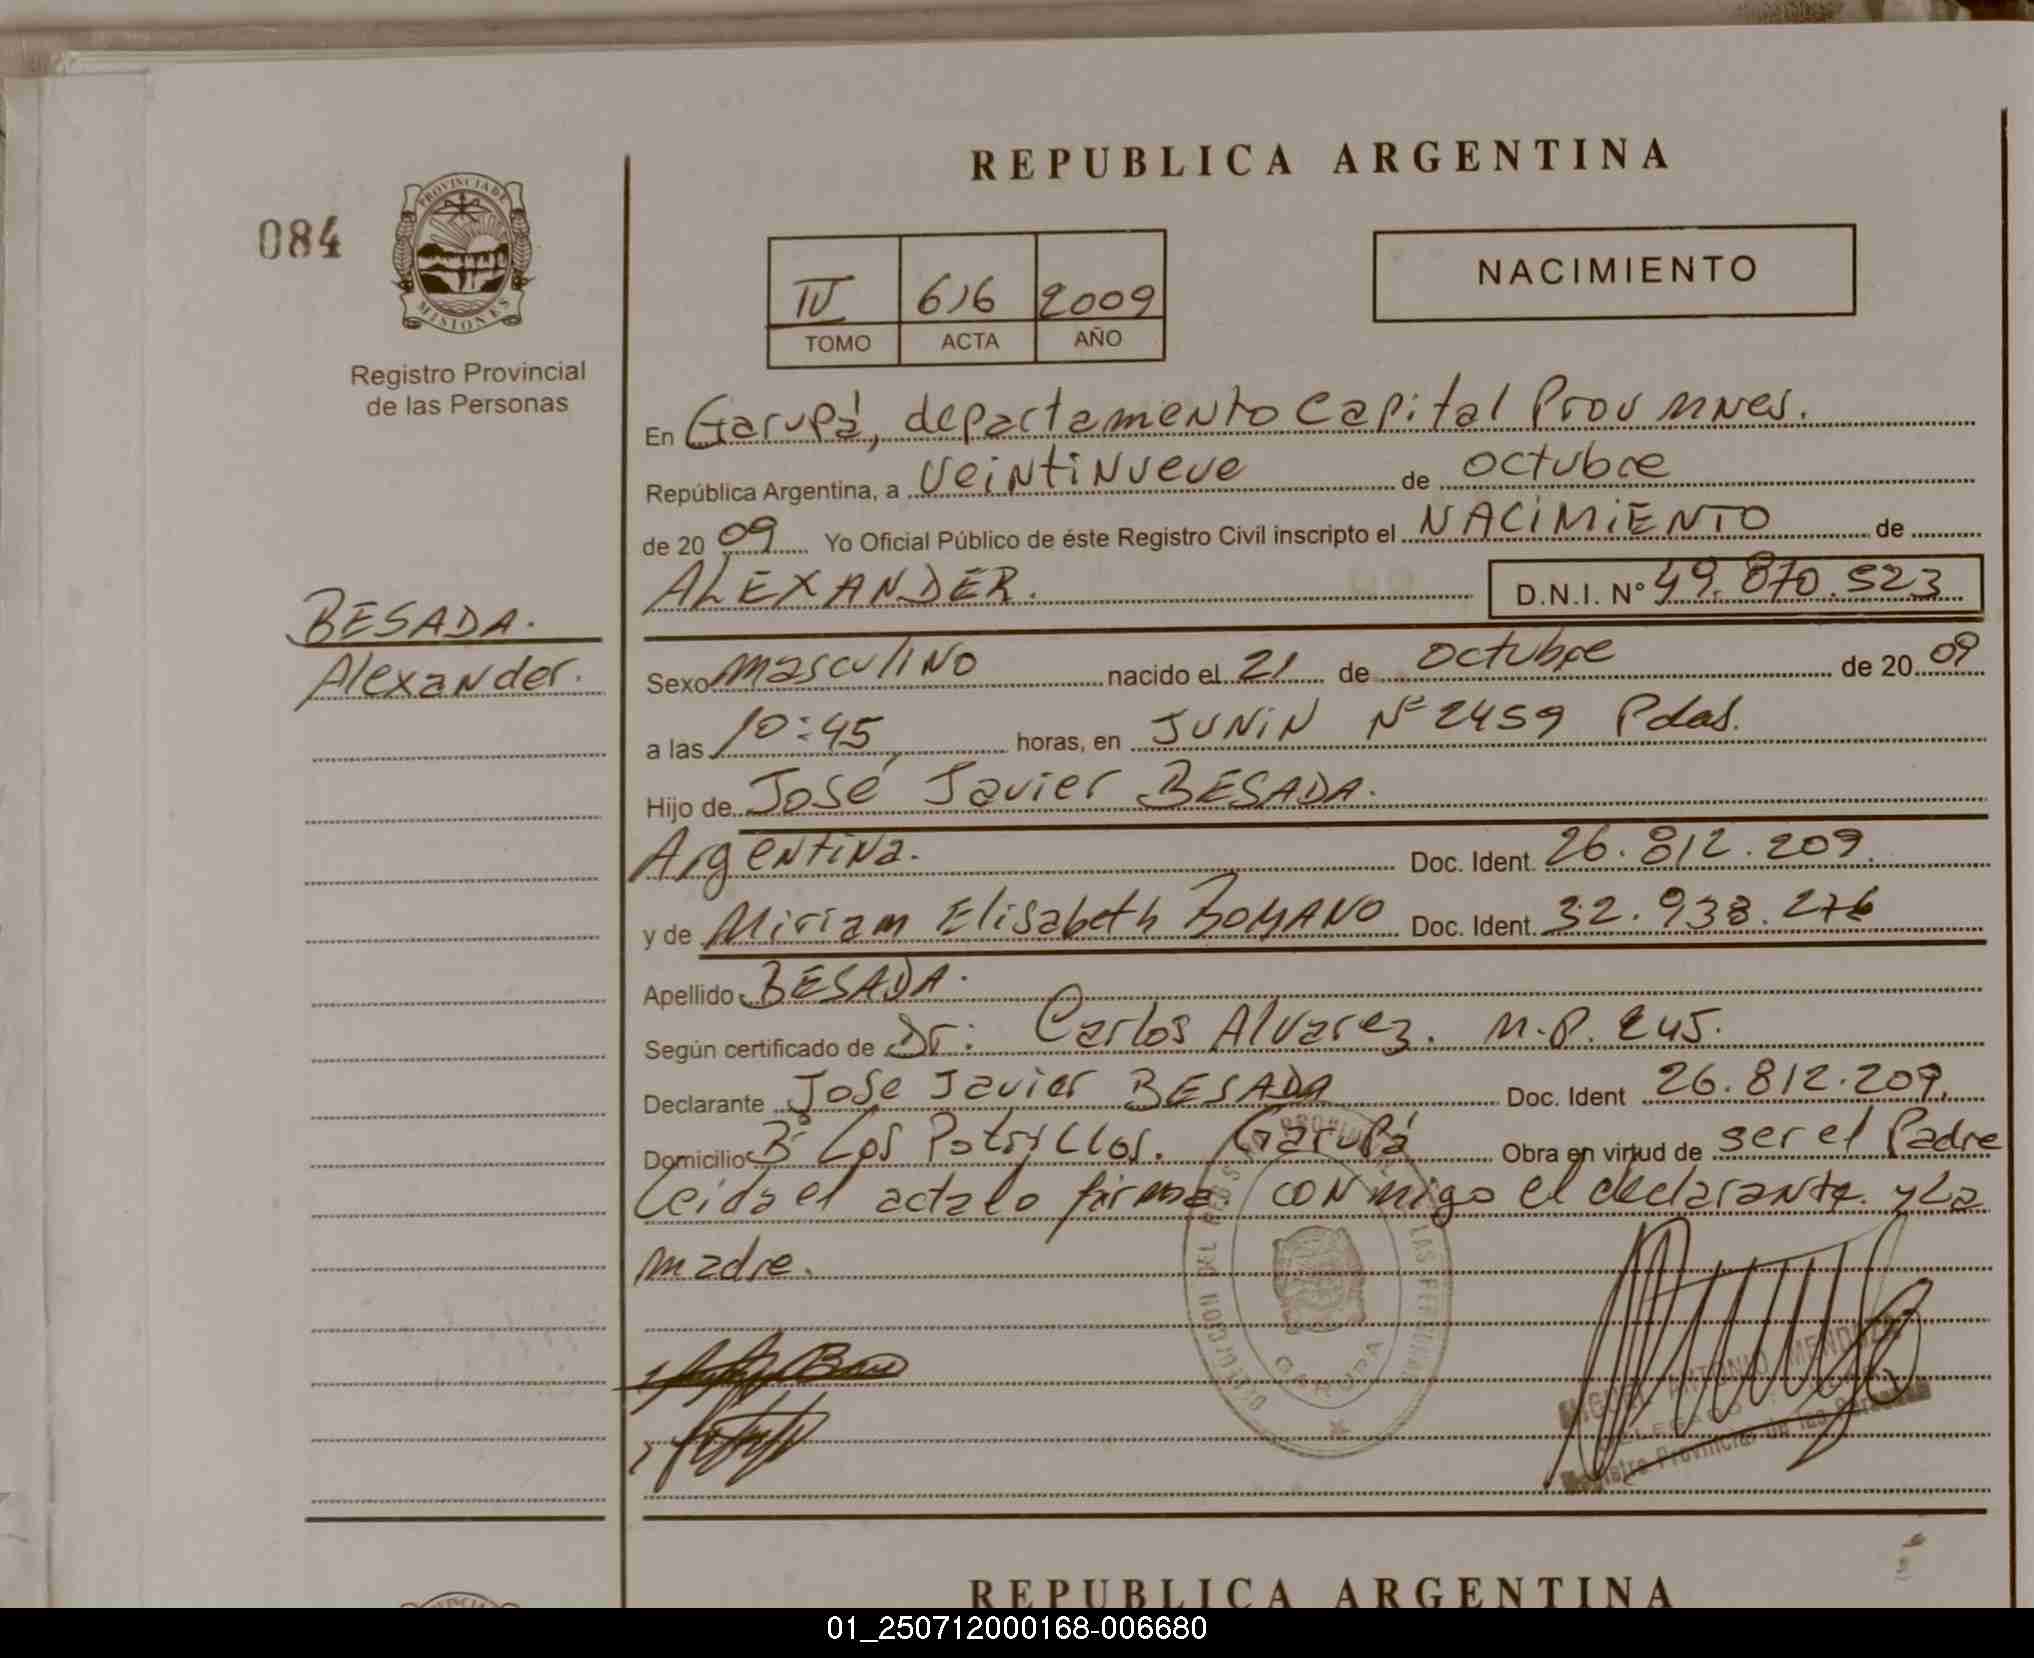 REPUBLICA ARGENTINA
084
PROVINCIA DE
MISIONES
Registro Provincial
de las Personas
IV 616 2009
TOMO ACTA AÑO
NACIMIENTO
En Garupá, departamento Capital Prov Mnes.
República Argentina, a Veintinueve de octubre
de 2009 Yo Oficial Público de éste Registro Civil inscripto el NACIMIENTO de
ALEXANDER. D.N.I. Nº 49.870.523
BESADA.
Alexander.
Sexo masculino nacido el 21 de octubre de 2009
a las 10:45 horas, en JUNIN Nº 2459 Pdas.
Hijo de José Javier BESADA.
Argentina. Doc. Ident. 26.812.209.
y de Miriam Elisabeth Doc. Ident. 32.938.276
Apellido BESADA.
Según certificado de Dr: Carlos Alvarez. M.P. 245.
Declarante Jose Javier BESADA Doc. Ident 26.812.209.
Domicilio Bº Los Potrillos. Garupá Obra en virtud de ser el Padre
Leida el acta lo firma conmigo el declarante y La
madre.
GARUPA
MIGUEL ANTONIO MENDOZA
Registro Provincial de las Personas
REPUBLICA ARGENTINA
01_250712000168-006680